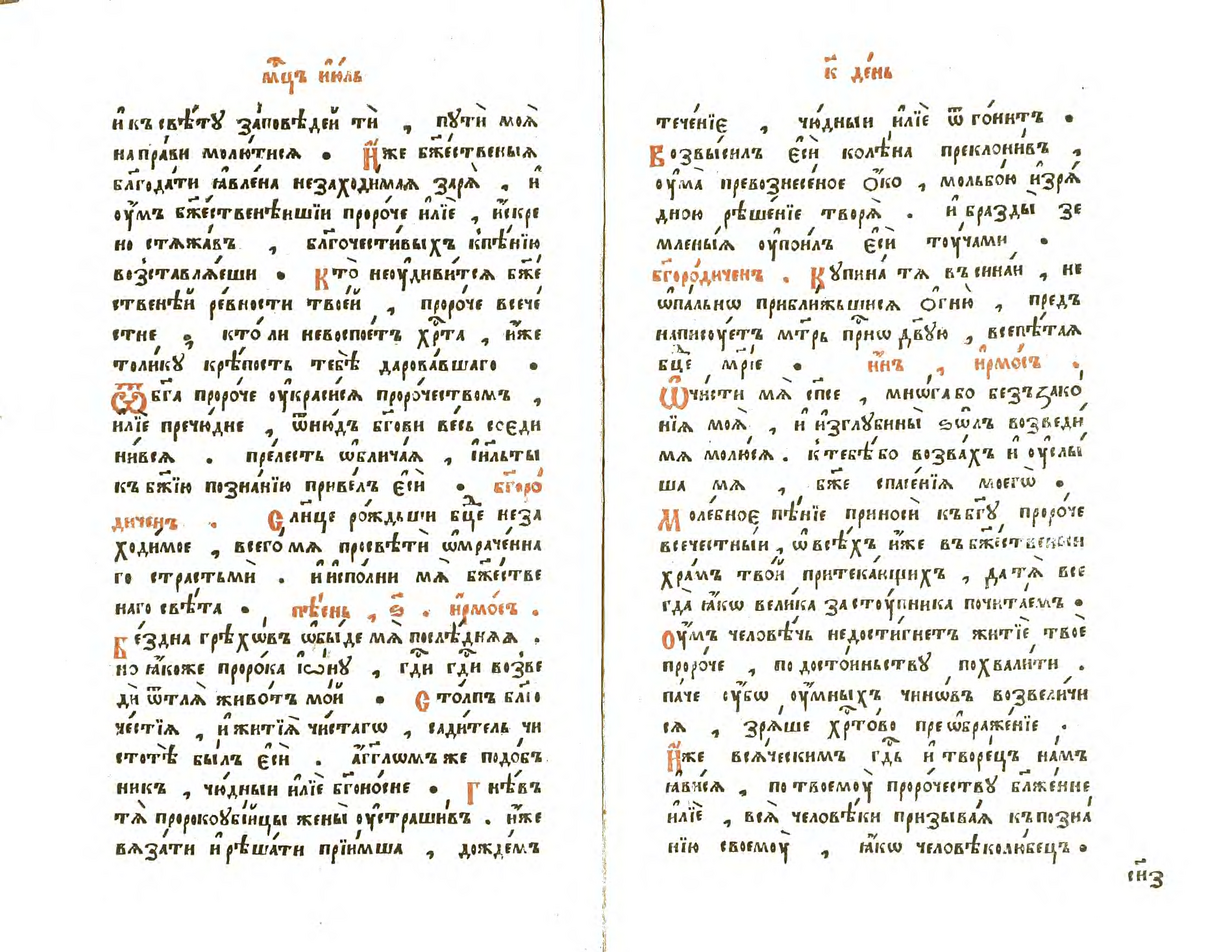 мⷭ҇цъ і҆ю́ль
и҆ къ свѣ́тꙋ за́повѣдей тѝ , пꙋтѝ моѧ̀
напра́ви молю́тисѧ . И҆́же бж҃е́ственыѧ
благода́ти ꙗ҆вле́на незаходи́маѧ зарѧ̀ , и҆
ᲂу҆́мъ бж҃е́ственѣишїи проро́че и҆лїѐ , и҆́скре
но стѧжа́въ , бл҃гочести́выхъ к̾пѣ́нїю
возставлѧ́еши . Кто̀ неᲂу҆диви́тсѧ бж҃е
ственѣ́й ре́вности твое́й , проро́че всече́
стне , кто́ ли невоспое́тъ хрⷭ҇та̀ , и҆́же
толи́кꙋ крѣ́пость тебѣ̀ дарова́вшаго .
Ѿ бг҃а проро́че ᲂу҆краси́сѧ проро́чествомъ ,
и҆лїѐ пречю́дне , ѿню́дъ бг҃ови ве́сь сᲂедн
ни́всѧ . пре́лесть ѡ҆блича́ѧ , си́льты
къ бж҃їю позна́нїю приве́лъ є҆сѝ . бг҃оро́
диченъ . Сл҃нце ро́ждьши бцⷣе неза
ходи́мое , всего́ мѧ просвѣтѝ ѡ҆мраче́нна
го страстьмѝ . и҆ и҆спо́лни мѧ̀ бж҃е́стве
наго свѣ́та . пѣ́снь , ѕ҃ . і҆рмо́съ .
Бе́здна грѣхѡ́въ ѡ҆бы́де мѧ̀ послѣ́днѧѧ .
но ꙗ҆́коже проро́ка і҆ѡ́нꙋ , гдⷭ҇и гдⷭ҇и возве
дѝ ѿ тлѧ̀ живо́тъ мо́й . Сто́лпъ бл҃го
че́стїѧ , и҆ житїѧ̀ чи́стагѡ , сади́тель чи
стотѣ̀ бы́лъ є҆сѝ . а҆́гг҃лѡмъ же подо́бъ
никъ , чю́дныи и҆лїѐ бг҃оно́сне . Гнѣ́въ
тѧ̀ пророкоᲂубі́йцы жены̀ ᲂу҆страши́въ . и҆́же
вѧза́ти и҆ рѣша́ти прїи́мша , дожде́мъ
к҃ де́нь
тече́нїе , чю́дныи и҆лїѐ ѿго́нитъ .
Возвы́силъ є҆сѝ колѣ́на прекло́нивъ ,
ᲂу҆ма̀ превознесе́ное ѻ҆́ко , мольбо́ю и҆зрѧ́
дною рѣше́нїе творѧ̀ . и҆ бразды̀ зе
мленыѧ ᲂу҆пои́лъ є҆сѝ тᲂу́чами .
бг҃оро́диченъ . Кꙋпина̀ тѧ въ сина́и , не
ѡ҆па́льнѡ прибли́жьшисѧ ѻ҆гню̀ , предъ
написꙋ́етъ мт҃рь при́нѡ дв҃ꙋю , всепѣ́таѧ
бцⷣе мр҃іе . и҆́нъ , і҆рмо́съ .
Ѡ҆чи́сти мѧ̀ сп҃се , мнѡ́га бо беззако
нїѧ моѧ̀ , и҆ и҆зглꙋбины̀ ѕѡ́лъ возведѝ
мѧ молю́сѧ . к тебѣ́ бо возва́хъ и҆ ᲂу҆слы
ша мѧ , бж҃е спасе́нїѧ моегѡ̀ .
Моле́бное пѣ́нїе приносѝ къ бг҃ꙋ проро́че
всече́стныи , ѡ҆ всѣ́хъ и҆́же въ бж҃е́ственыи
хра́мъ тво́й притека́ющихъ , да тѧ̀ все
гда̀ ꙗ҆́кѡ вели́ка застᲂу́пника почита́емъ .
Оу҆́мъ человѣ́чь недости́гнетъ житїѐ твоѐ
проро́че , по досто́иньствꙋ похвали́ти .
па́че сꙋ́бѡ ᲂу҆́мныхъ чинѡ́въ возвели́чи
сѧ , зрѧ́ше хрⷭ҇то́во преѡбраже́нїе .
И҆́же всѧ́ческимъ гдⷭ҇ь и҆ творе́цъ на́мъ
ꙗ҆ви́сѧ , по твоемᲂу̀ проро́чествꙋ блаже́нне
и҆лїѐ , всѧ̀ человѣ́ки призыва́ѧ къ позна́
нїю своемᲂу̀ , ꙗ҆́кѡ человѣколю́бецъ .
сн҃з